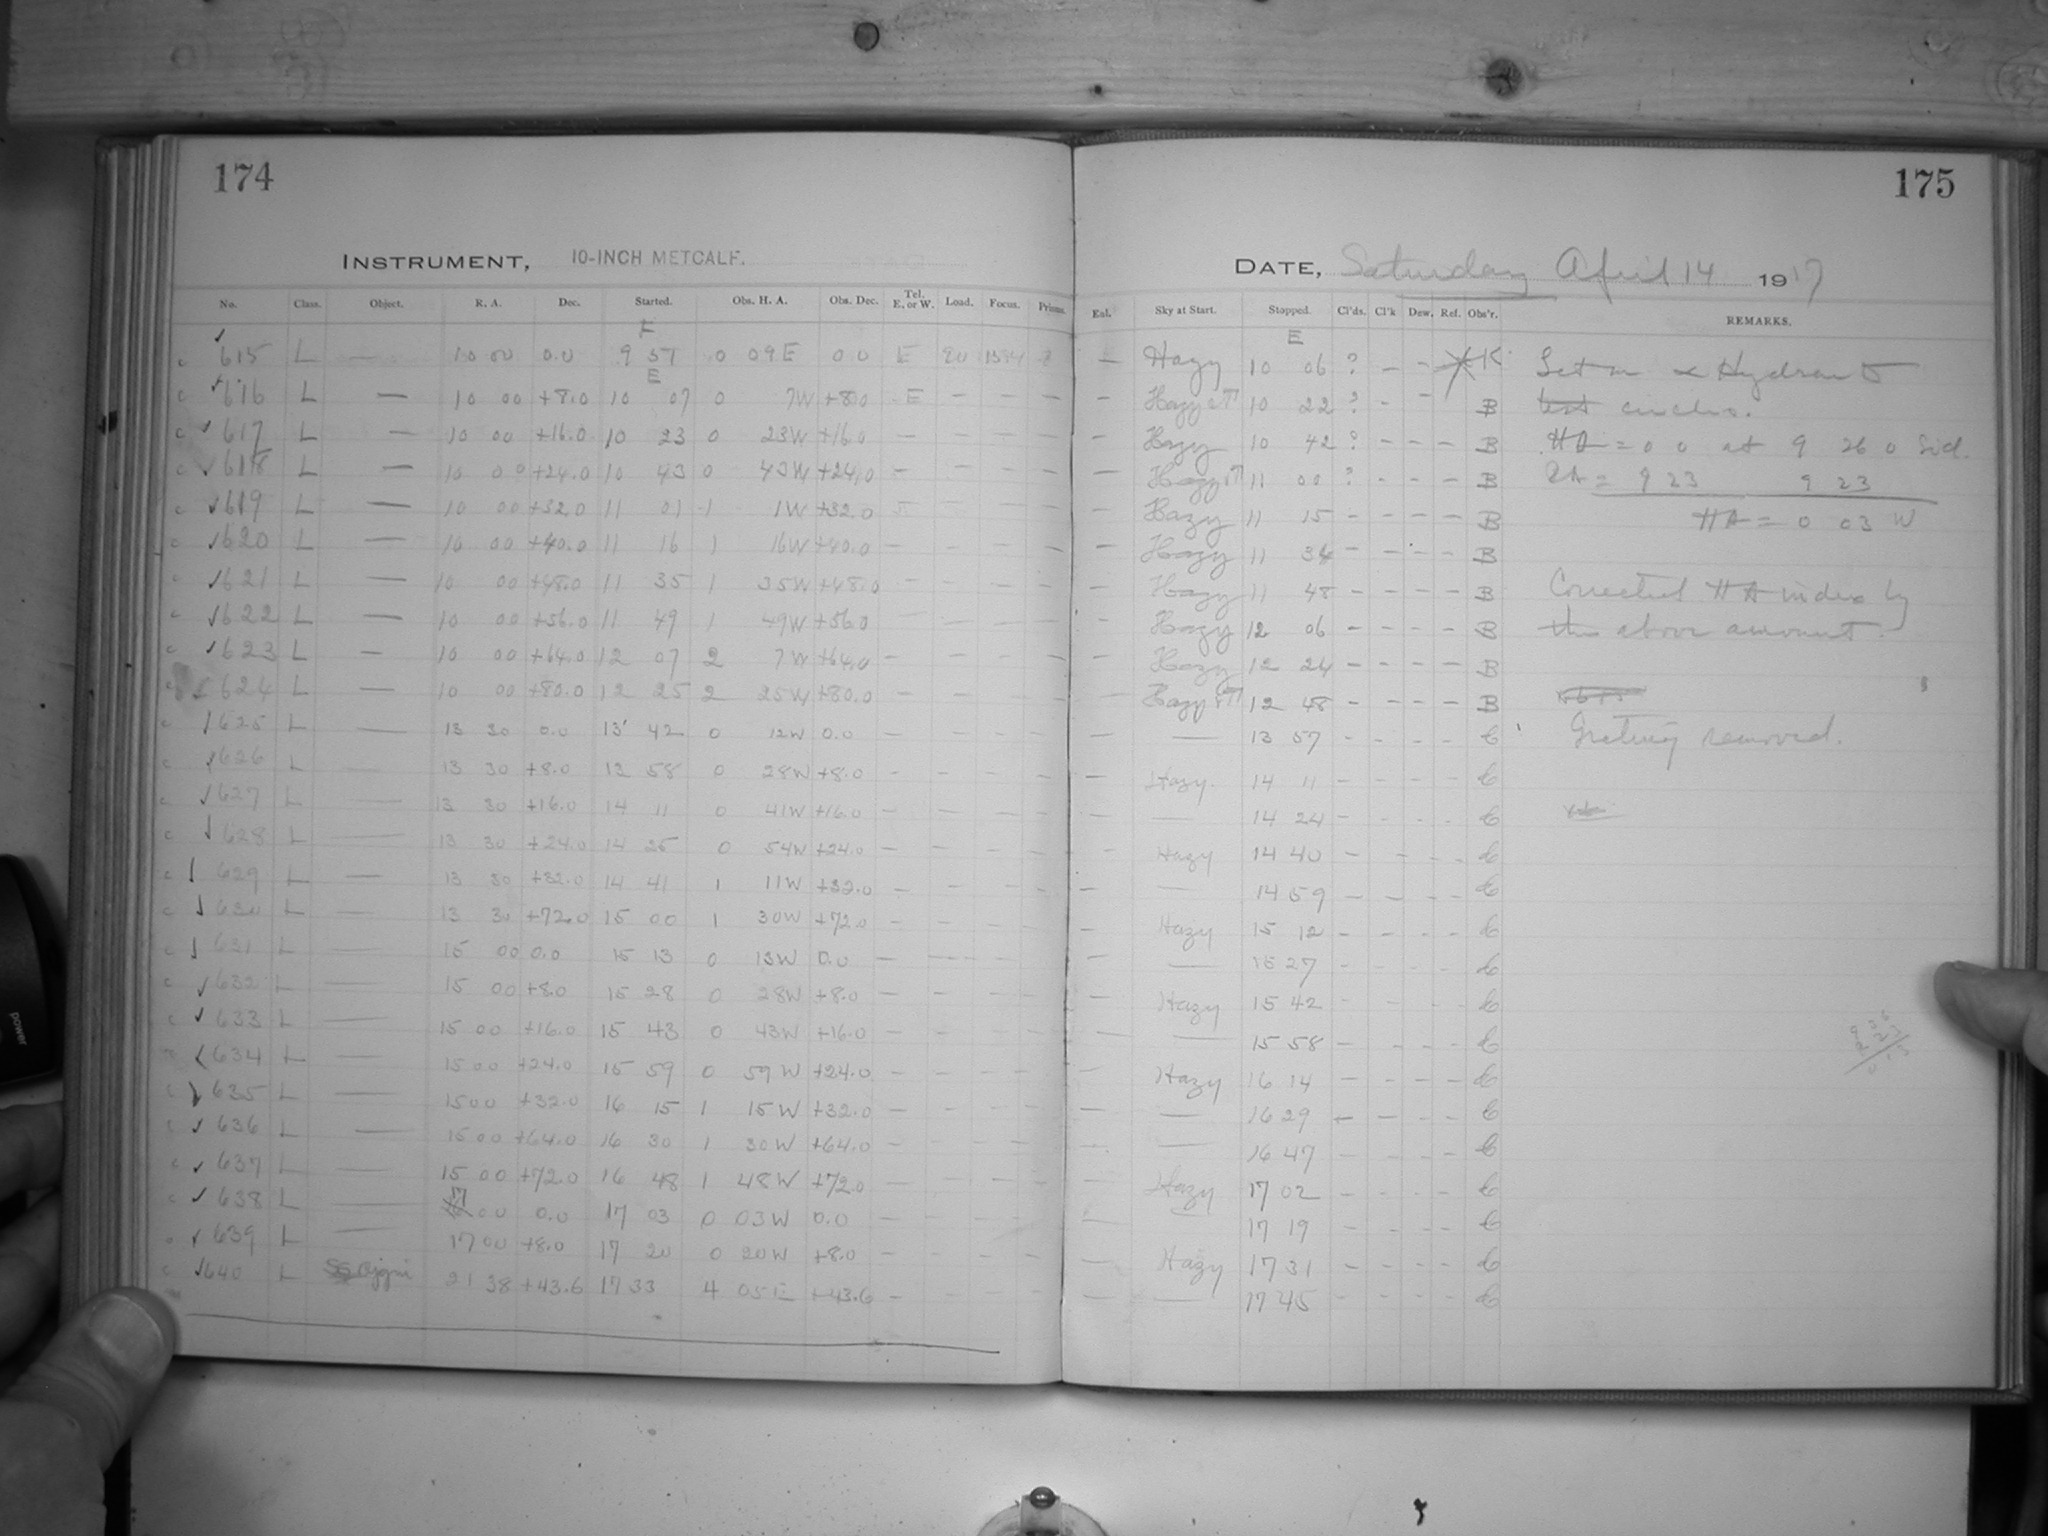 174
INSTRUMENT, 10-INCH METCALF.
No. Class. Object. R. A. Dec. Started. Obs. H. A. Obs. Dec. Tel. E. or W. Load. Focus. Prisms.
E
c 615 L — 10 00 0.0 9 57 0 09 E 0 0 E 20
E
c 616 L — 10 00 +8.0 10 07 0 7W +8.0 E — — —
c 617 L — 10 00 +16.0 10 23 0 23W +16.0 — — — —
c 618 L — 10 00 +24.0 10 43 0 43W +24.0 — — — —
c 619 L — 10 00 +32.0 11 01 1 1W +32.0 — — —
c 620 L — 10 00 +40.0 11 16 1 16W +40.0 — — — —
c 621 L — 10 00 +48.0 11 35 1 35W +48.0 — — — —
c 622 L — 10 00 +56.0 11 49 1 49W +56.0 — — — —
c 623 L — 10 00 +64.0 12 07 2 7W +64.0 — — — —
624 L — 10 00 +80.0 12 25 2 25W +80.0 — — — —
c 625 L — 13 30 0.0 13 42 0 12W 0.0 — — — —
c 626 L — 13 30 +8.0 13 58 0 28W +8.0 — — — —
c 627 L — 13 30 +16.0 14 11 0 41W +16.0 — — — —
c 628 L — 13 30 +24.0 14 25 0 54W +24.0 — — — —
c 629 L — 13 30 +32.0 14 41 1 11W +32.0 — — — —
c 630 L — 13 30 +72.0 15 00 1 30W +72.0 — — — —
c 631 L — 15 00 0.0 15 13 0 13W 0.0 — — — —
c 632 L — 15 00 +8.0 15 28 0 28W +8.0 — — — —
c 633 L — 15 00 +16.0 15 43 0 43W +16.0 — — — —
634 L — 15 00 +24.0 15 59 0 59W +24.0 — — — —
c 635 L — 15 00 +32.0 16 15 1 15W +32.0 — — — —
c 636 L — 15 00 +64.0 16 30 1 30W +64.0 — — — —
c 637 L — 15 00 +72.0 16 48 1 48W +72.0 — — — —
c 638 L — 17 00 0.0 17 03 0 03W 0.0 — — — —
639 L — 17 00 +8.0 17 20 0 20W +8.0 — — — —
c 640 L SS Cygni 21 38 +43.6 17 33 4 05 E +43.6 — — — —
175
DATE, Saturday April 14 1917
Eal. Sky at Start. Stopped. Cl'ds. Cl'k Dew. Ref. Obs'r. REMARKS.
E
— Hazy 10 06 ? — — K Set on α Hydrae to
— Hazy 10 22 ? — — B test circles.
— Hazy 10 42 ? — — — B HA = 0 0 at 9 26 0 Sid.
— Hazy 11 00 ? — — — B RA = 9 23 9 23
— Hazy 11 15 — — — — B HA = 0 03 W
— Hazy 11 34 — — — — B
— Hazy 11 48 — — — — B Corrected HA index by
— Hazy 12 06 — — — — B the above amount.
— Hazy 12 24 — — — — B
— Hazy 12 48 — — — — B
— — 13 57 — — — — C Grating removed.
— Hazy. 14 11 — — — — C
— — 14 24 — — — — C
— Hazy 14 40 — — — — C
— — 14 59 — — — — C
— Hazy 15 12 — — — — C
— — 15 27 — — — — C
— Hazy 15 42 — — — — C
— — 15 58 — — — — C
— Hazy 16 14 — — — — C
— — 16 29 — — — — C
— — 16 47 — — — — C
— Hazy 17 02 — — — — C
— — 17 19 — — — — C
— Hazy 17 31 — — — — C
— — 17 45 — — — — C
power